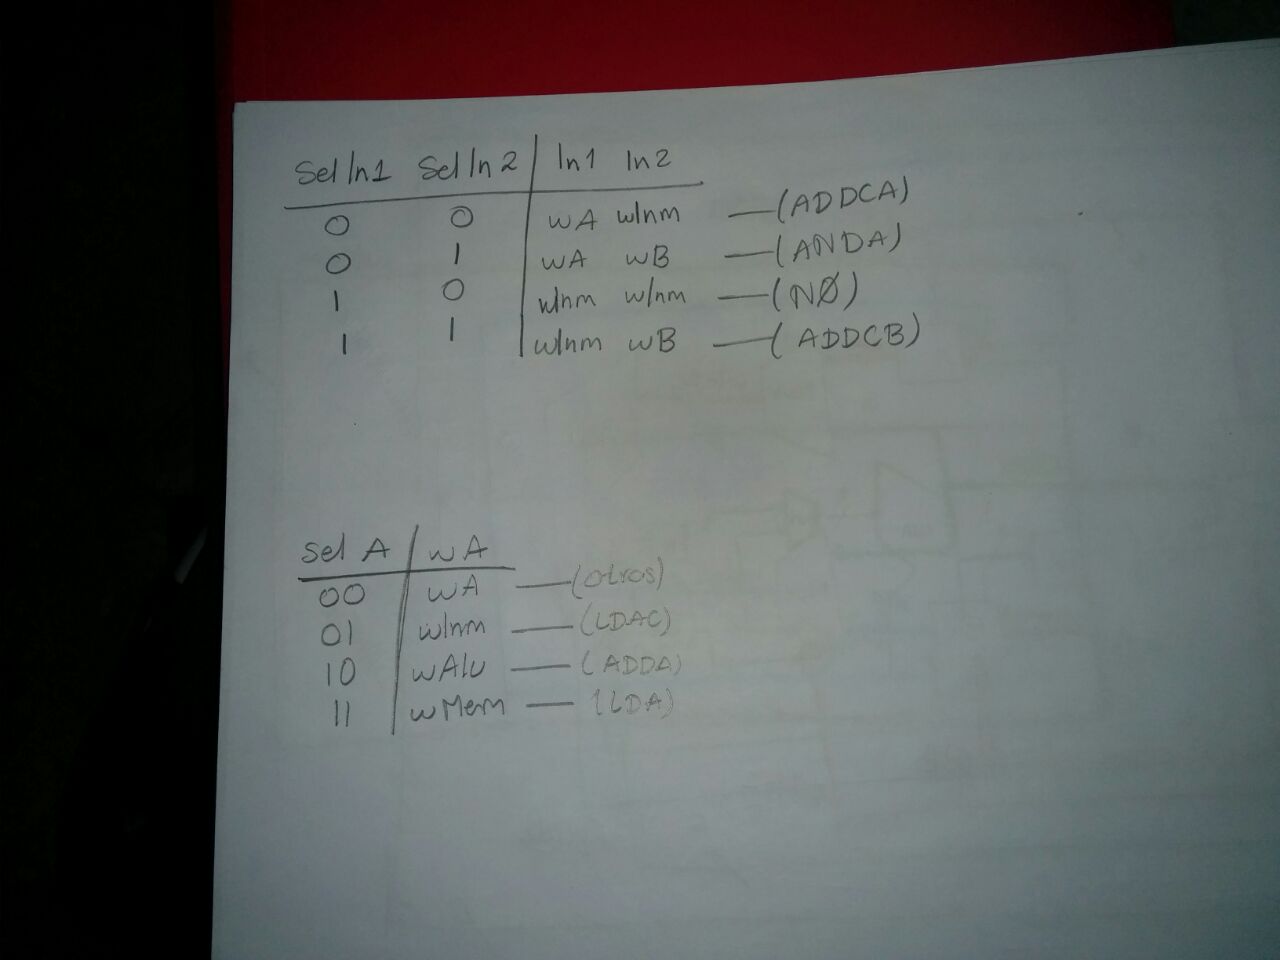 Sel In1 Sel In 2 In1 In2
0 0 wA wInm —(ADDCA)
0 1 wA wB —(ANDA)
1 0 wInm wInm —(NØ)
1 1 wInm wB —(ADDCB)
sel A wA
00 wA —(otros)
01 wInm —(LDAC)
10 wAlu —(ADDA)
11 wMem —(LDA)